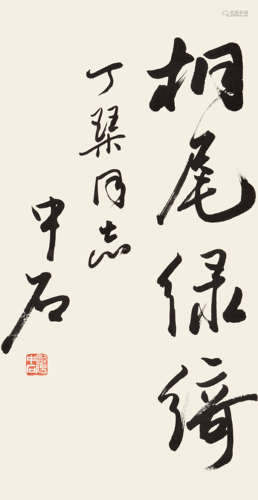 桐尾绿绮
丁琹同志
中石